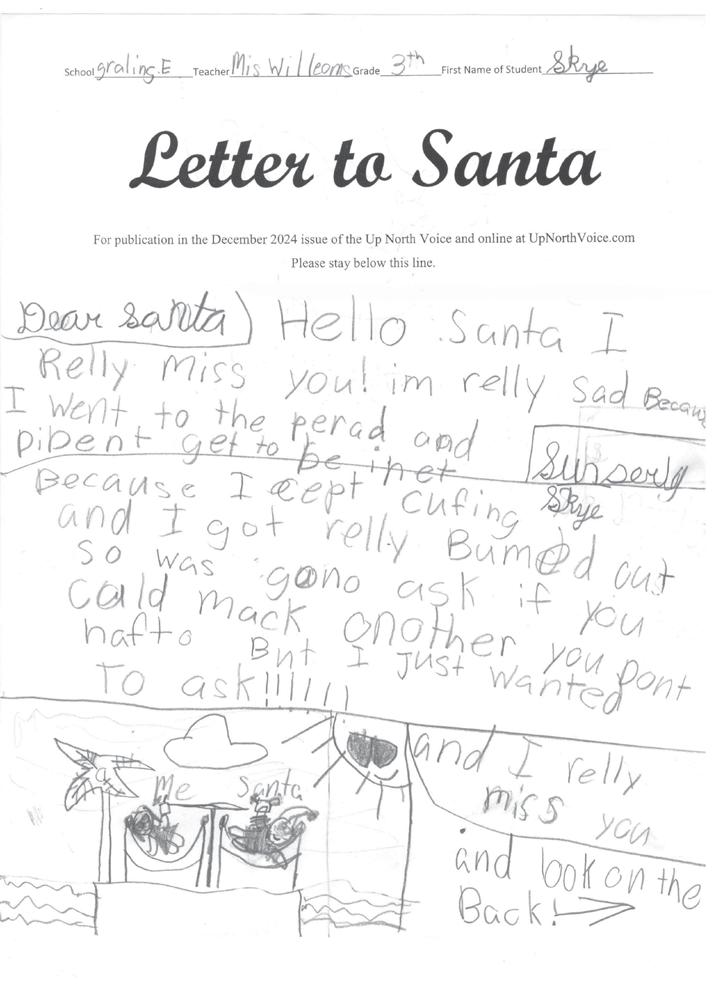 School graling.E Teacher Mis Willeams Grade 3th First Name of Student Skye
Letter to Santa
For publication in the December 2024 issue of the Up North Voice and online at UpNorthVoice.com
Please stay below this line.
Dear santa) Hello Santa I
Relly miss you! im relly sad Becaus
I went to the perad and
Dibent get to be inet
Because I cept cufing
Sunserly
Skye
and I got relly Bumed out
so was gono ask if you
cald mack another you Dont
hafto But I Just wanted
To ask!!!!!!!
Me Santa
and I relly
miss you
and look on the
Back!